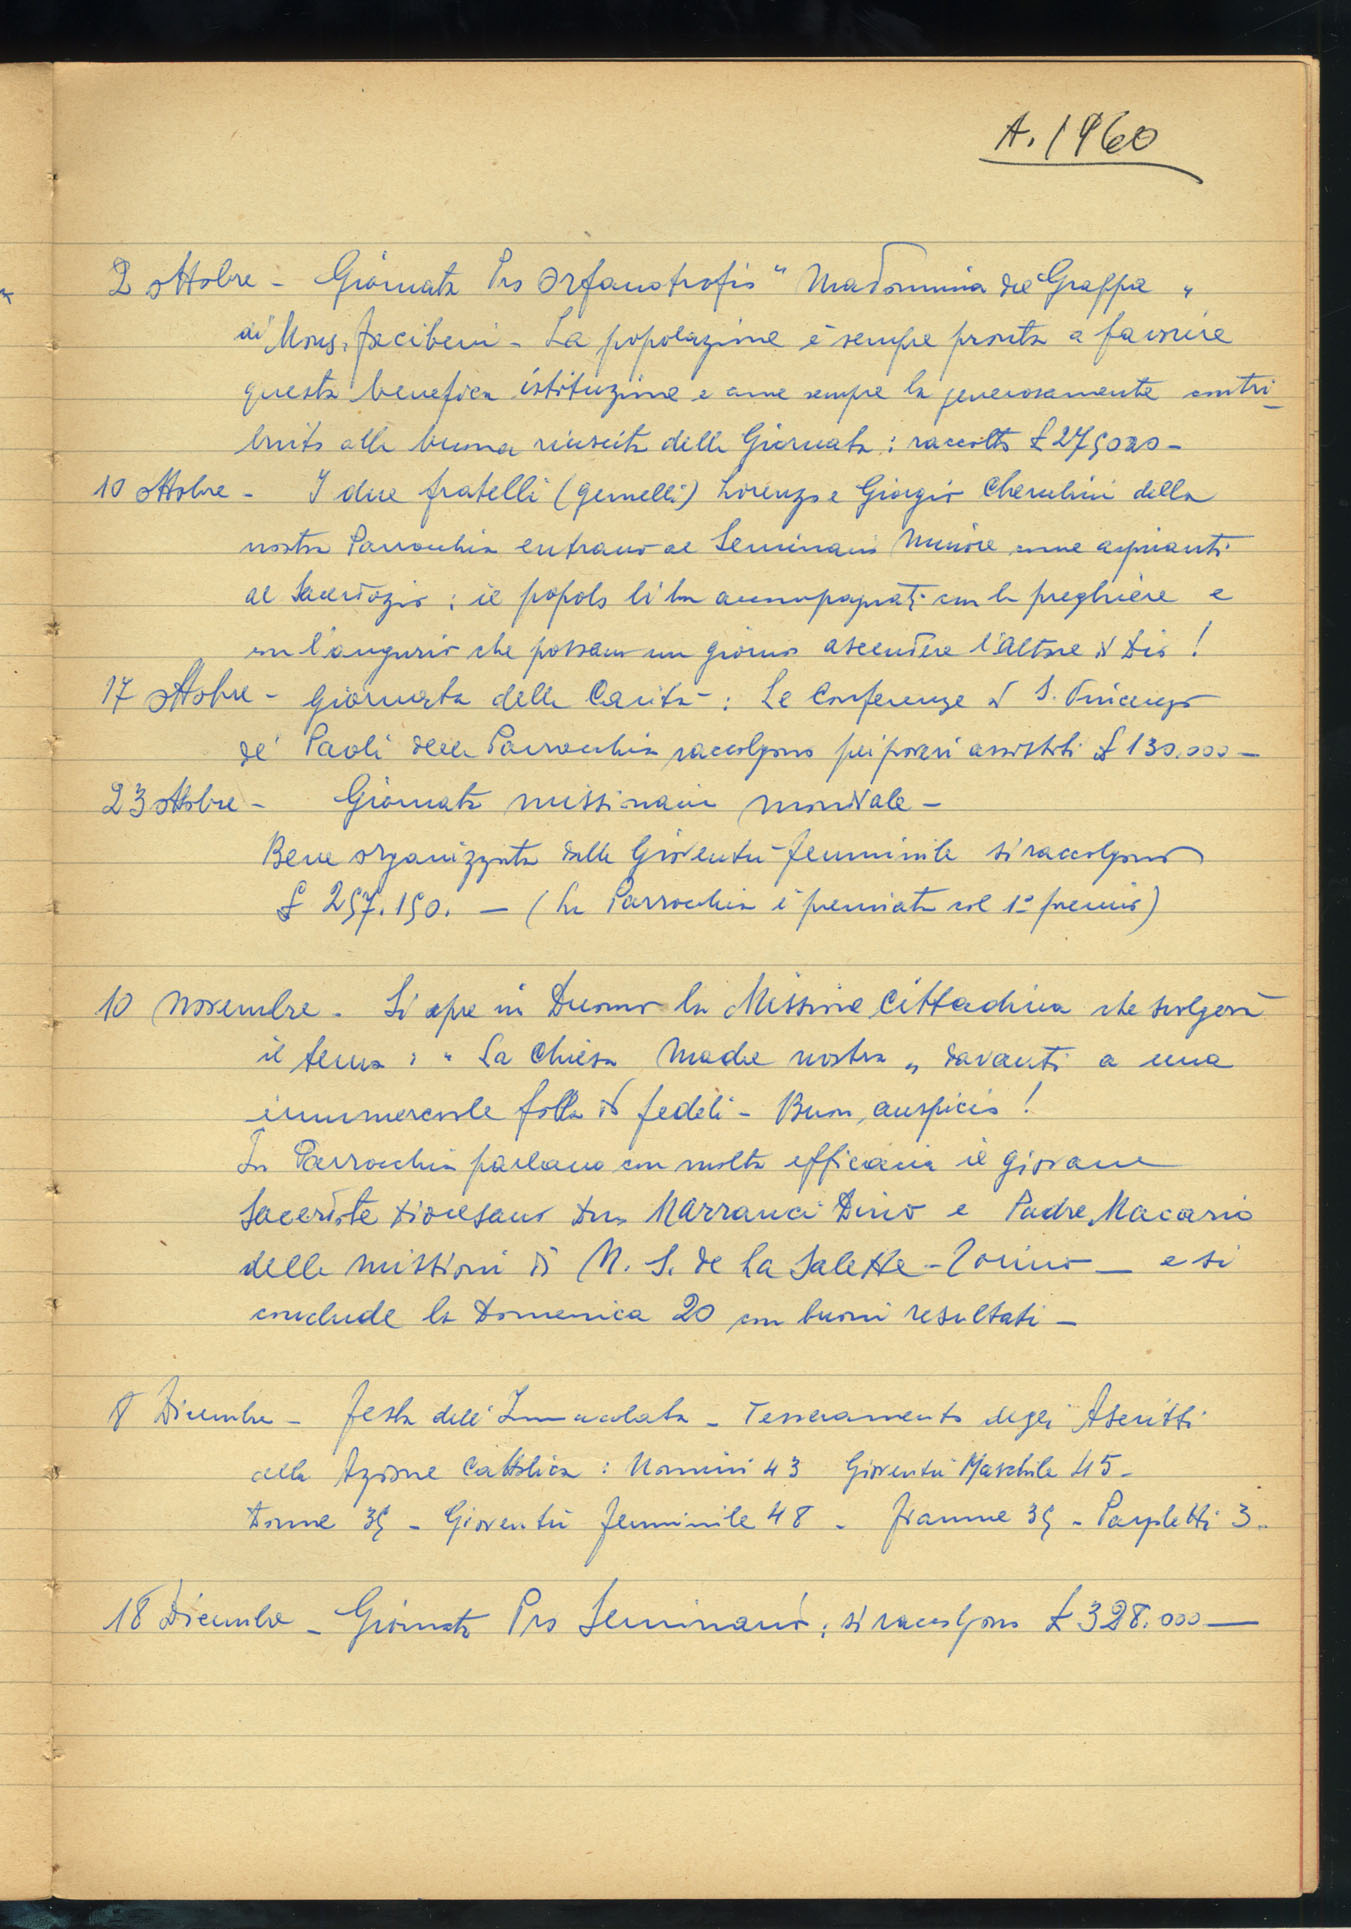 A. 1960
2 ottobre - Giornata Pro Orfanotrofio "Madonnina del Grappa"
di Mons. Facibeni - La popolazione è sempre pronta a favorire
questa benefica istituzione e come sempre ha generosamente contri-
buito alla buona riuscita della Giornata: raccolto £
10 ottobre - I due fratelli (gemelli) Lorenzo e Giorgio Cherubini della
nostra Parrocchia entrano al Seminario Minore come aspiranti
al Sacerdozio: il popolo li ha accompagnati con la preghiera e
con l'augurio che possano un giorno ascendere l'Altare di Dio!
17 ottobre - Giornata della Carità: Le Conferenze di S. Vincenzo
de' Paoli della Parrocchia raccolgono pei poveri assistiti £ 130.000 -
23 ottobre - Giornata missionaria mondiale -
Bene organizzata dalla Gioventù femminile si raccolgono
£ 257.150. - (La Parrocchia è premiata col 1° premio)
10 novembre - Si apre in Duomo la Missione Cittadina che svolgerà
il tema: "La Chiesa Madre nostra" davanti a una
innumerevole folla di fedeli - Buon auspicio!
In Parrocchia parlano con molta efficacia il giovane
Sacerdote Diocesano Don Marranci Dino e Padre Macario
delle missioni di N. S. de La Salette - Torino - e si
conclude la Domenica 20 con buoni resultati -
8 Dicembre - Festa dell'Immacolata - Tesseramento degli Ascritti
alla Azione Cattolica: Uomini 43 Gioventù Maschile 45 -
Donne 35 - Gioventù femminile 48 - Fiamme 35 - 3 -
18 Dicembre - Giornata Pro Seminario: si raccolgono £ 328.000 -